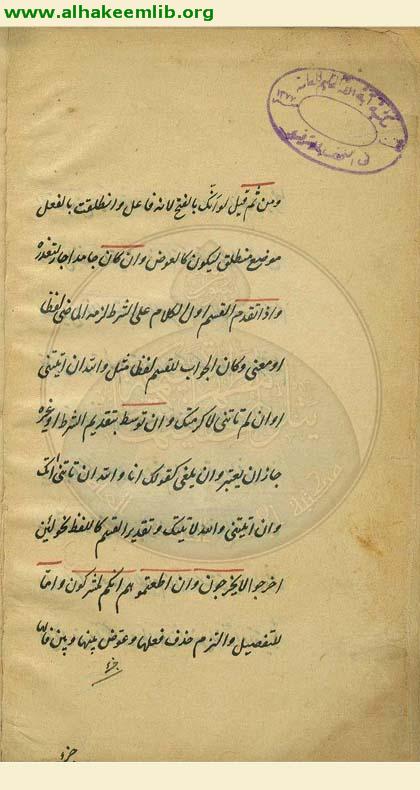 www.alhakeemlib.org
ومن ثم قيل لو انك بالفتح لانه فاعل وانطلقت بالفعل
موضع منطلق ليكون كالعوض وان كان جامدا جاز لتعذره
واذا تقدم القسم اول الكلام على الشرط لزمه الماضى لفظا
او معنى وكان الجواب للقسم لفظا مثل والله ان اتيتنى
او ان لم تاتنى لاكرمتك وان توسط بتقديم الشرط او غيره
جاز ان يعتبر وان يلغى كقولك انا والله ان تاتنى اتك
وان اتيتنى والله لاتيتك وتقدير القسم كاللفظ نحو لئن
اخرجوا لا يخرجون وان اطعتموهم انكم لمشركون واما
للتفصيل والتزم حذف فعلها وعوض بينها وبين فائها
جزء
جزء